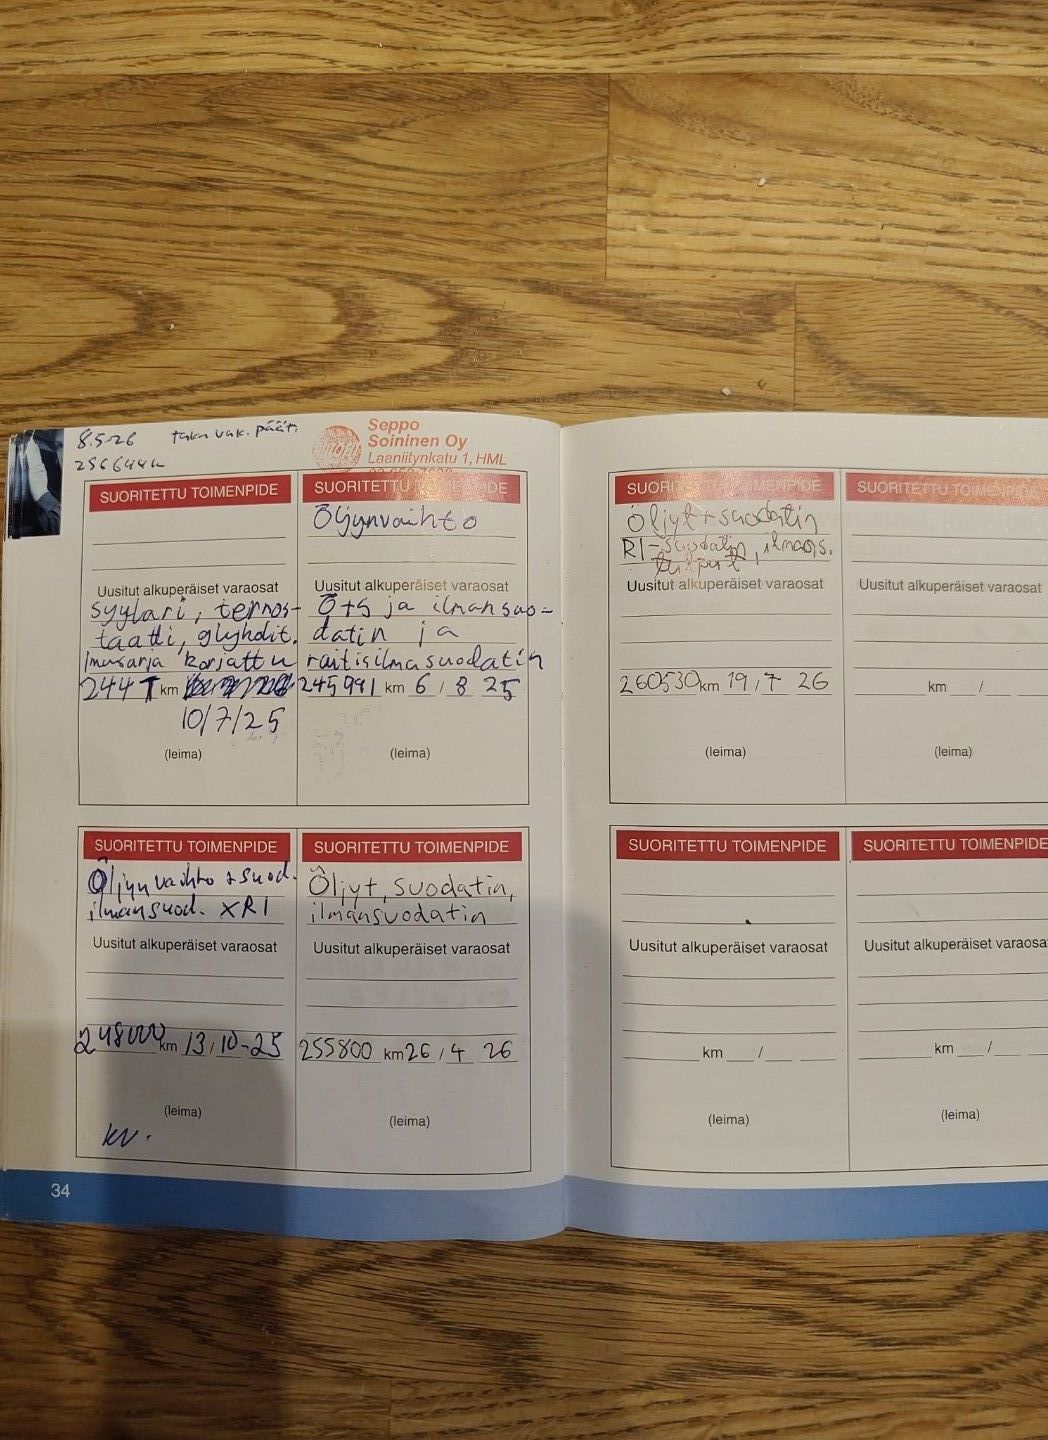 8.5-26 vak. päät.
Seppo
Soininen Oy
Laaniitynkatu 1, HML
SUORITETTU TOIMENPIDE
Uusitut alkuperäiset varaosat
syylari, termos-
taatti, glyhdit.
Imusarja korjattu
244T km
10/7/25
(leima)
SUORITETTU TOIMENPIDE
Öljynvaihto
Uusitut alkuperäiset varaosat
Ö+S ja ilmansuo-
datin ja
raitisilmasuodatin
245991 km 6 / 8 25
(leima)
SUORITETTU TOIMENPIDE
Öljynvaihto + suod.
ilmansuod. XRI
Uusitut alkuperäiset varaosat
248000 km 13/10-25
(leima)
SUORITETTU TOIMENPIDE
Öljyt, suodatin,
ilmansuodatin
Uusitut alkuperäiset varaosat
255800 km 26 / 4 26
(leima)
34
SUORITETTU TOIMENPIDE
Öljyt + suodatin
RI-suodatin, ilmans.
tulpat
Uusitut alkuperäiset varaosat
260530 km 19/7 26
(leima)
SUORITETTU TOIMENPIDE
Uusitut alkuperäiset varaosat
km /
(leima)
SUORITETTU TOIMENPIDE
Uusitut alkuperäiset varaosat
km /
(leima)
SUORITETTU TOIMENPIDE
Uusitut alkuperäiset varaosat
km /
(leima)